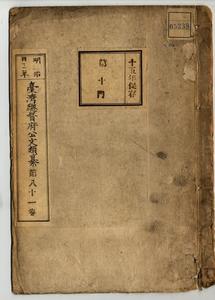 65239
十五年保存
第十門
明治
四二年
臺灣總督府公文類纂 第八十一卷